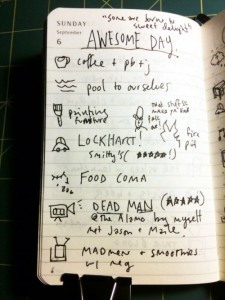 "some are born to
sweet delight"
SUNDAY
September
6
AWESOME DAY.
coffee + pb+j
pool to ourselves
painting
furniture
that stuff'll
make ya hand
fall
off
fire
pit
LOCKHART!
Smitty's (★★★★★!)
FOOD COMA
DEAD MAN (★★★★★)
@ the Alamo by myself
met Jason +
MADMEN + SMOOTHIES
w/ meg